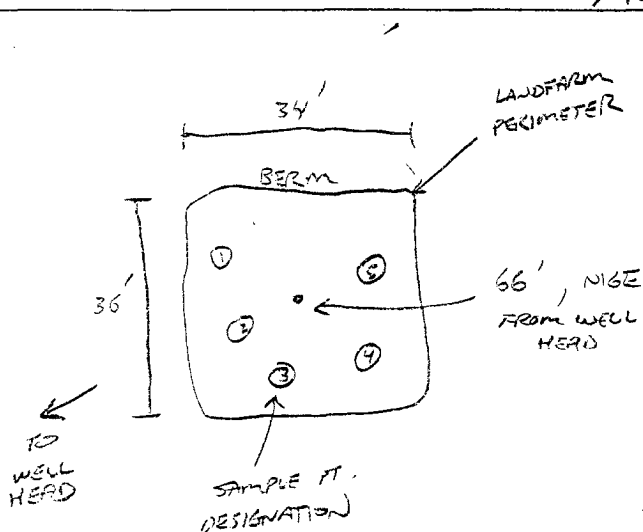 34'
LANDFARM
PERIMETER
BERM
1
5
36'
66',
FROM WELL
HEAD
2
4
3
TO
WELL
HEAD
SAMPLE PT.
DESIGNATION